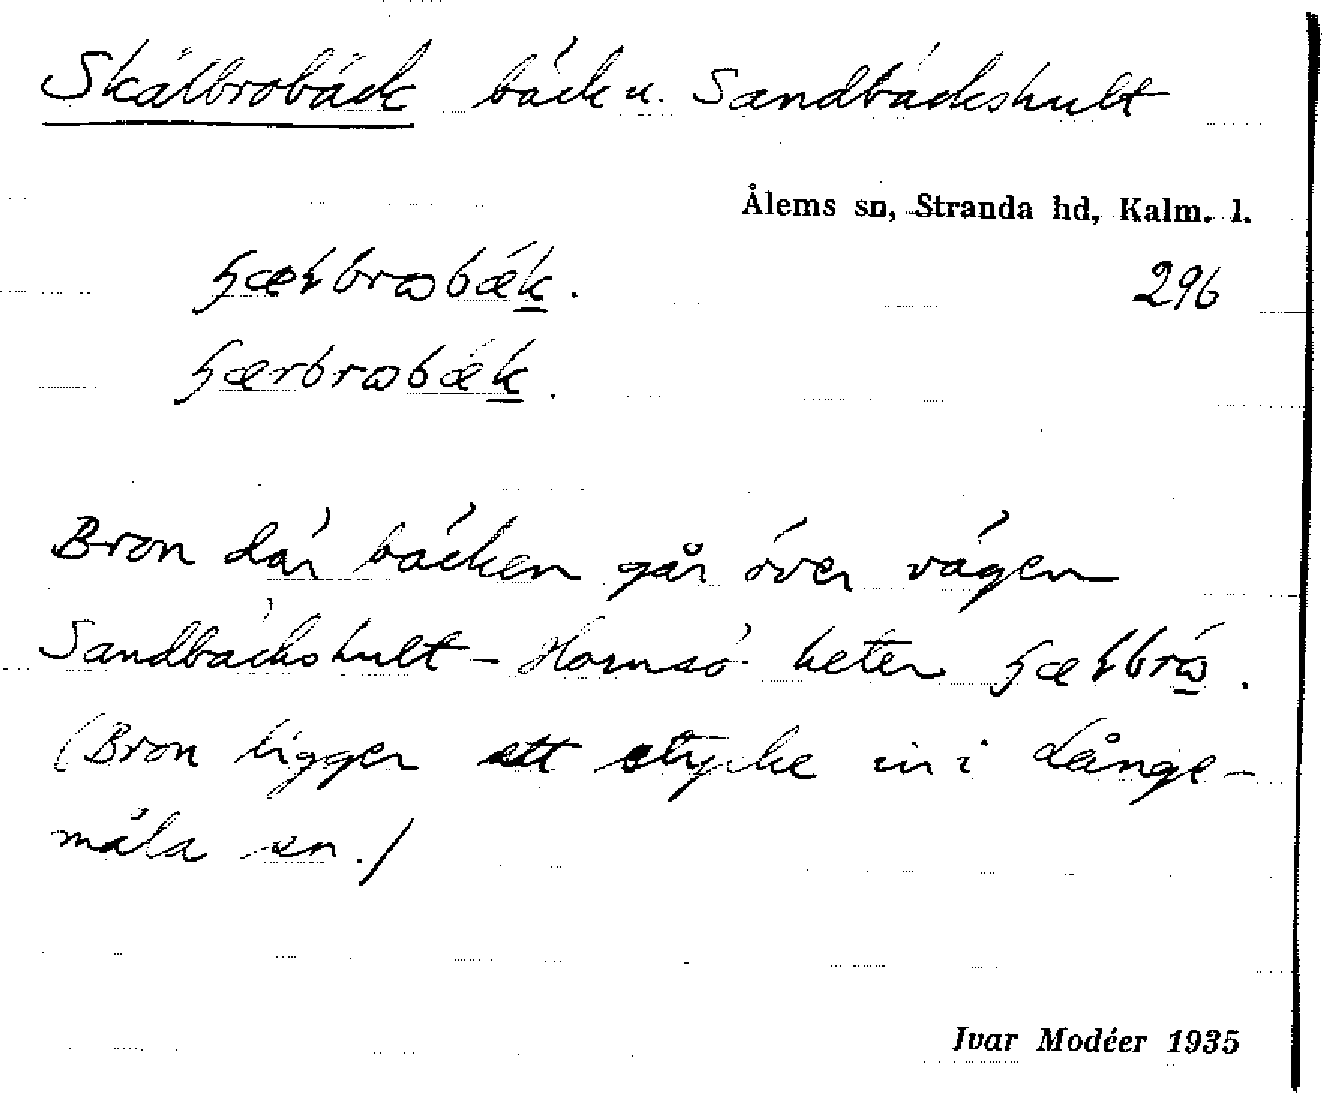 Skälbrobäck bäck u. Sandbäckshult
Ålems sn, Stranda hd, Kalm. l.
296
Bron där bäcken går över vägen
Sandbäckshult – Hornsö heter
(Bron ligger ett stycke in i Långe-
måla sn.)
Ivar Modéer 1935